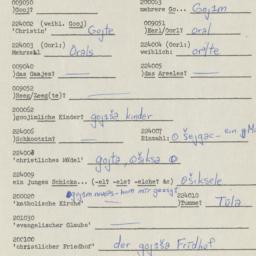 009050 009053
)Gooj? mehrere Go... Gojim
224002 (weibl. Gooj) 009051
'Christin' Gojte )Herl/Oorl? oral
224003 (Oorl:) 224004 (Oorl:)
Mehrzal Orals weiblich: orlte
009040 220005
)das Gaajes? — das Areles? —
009052
)Heeg/Zeeg(te)? —
200062
)goojimliche Kinder? gojiša kinder
224006 224007
)Schkootzim? — Einzahl: o šejgac - ein
224008
'christliches Mädel' gojta, ošiksa
224009
ein junges Schicks... (-el? -els? -elche? &c) ošiksele
200020 224010
'katholische Kirche' )Tumme? Tola
201030
'evangelischer Glaube' —
200100
'christlicher Friedhof' der gojiša Fridhof